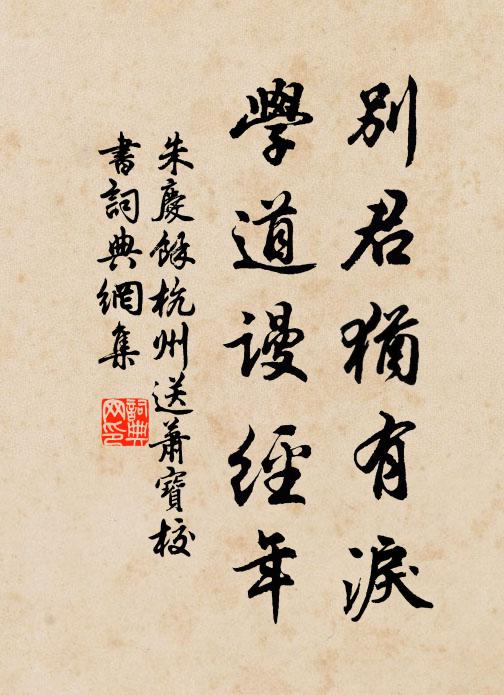 別君猶有淚
學道謾經年
朱慶餘杭州送蕭寶校
書詞典網集
詞典网印